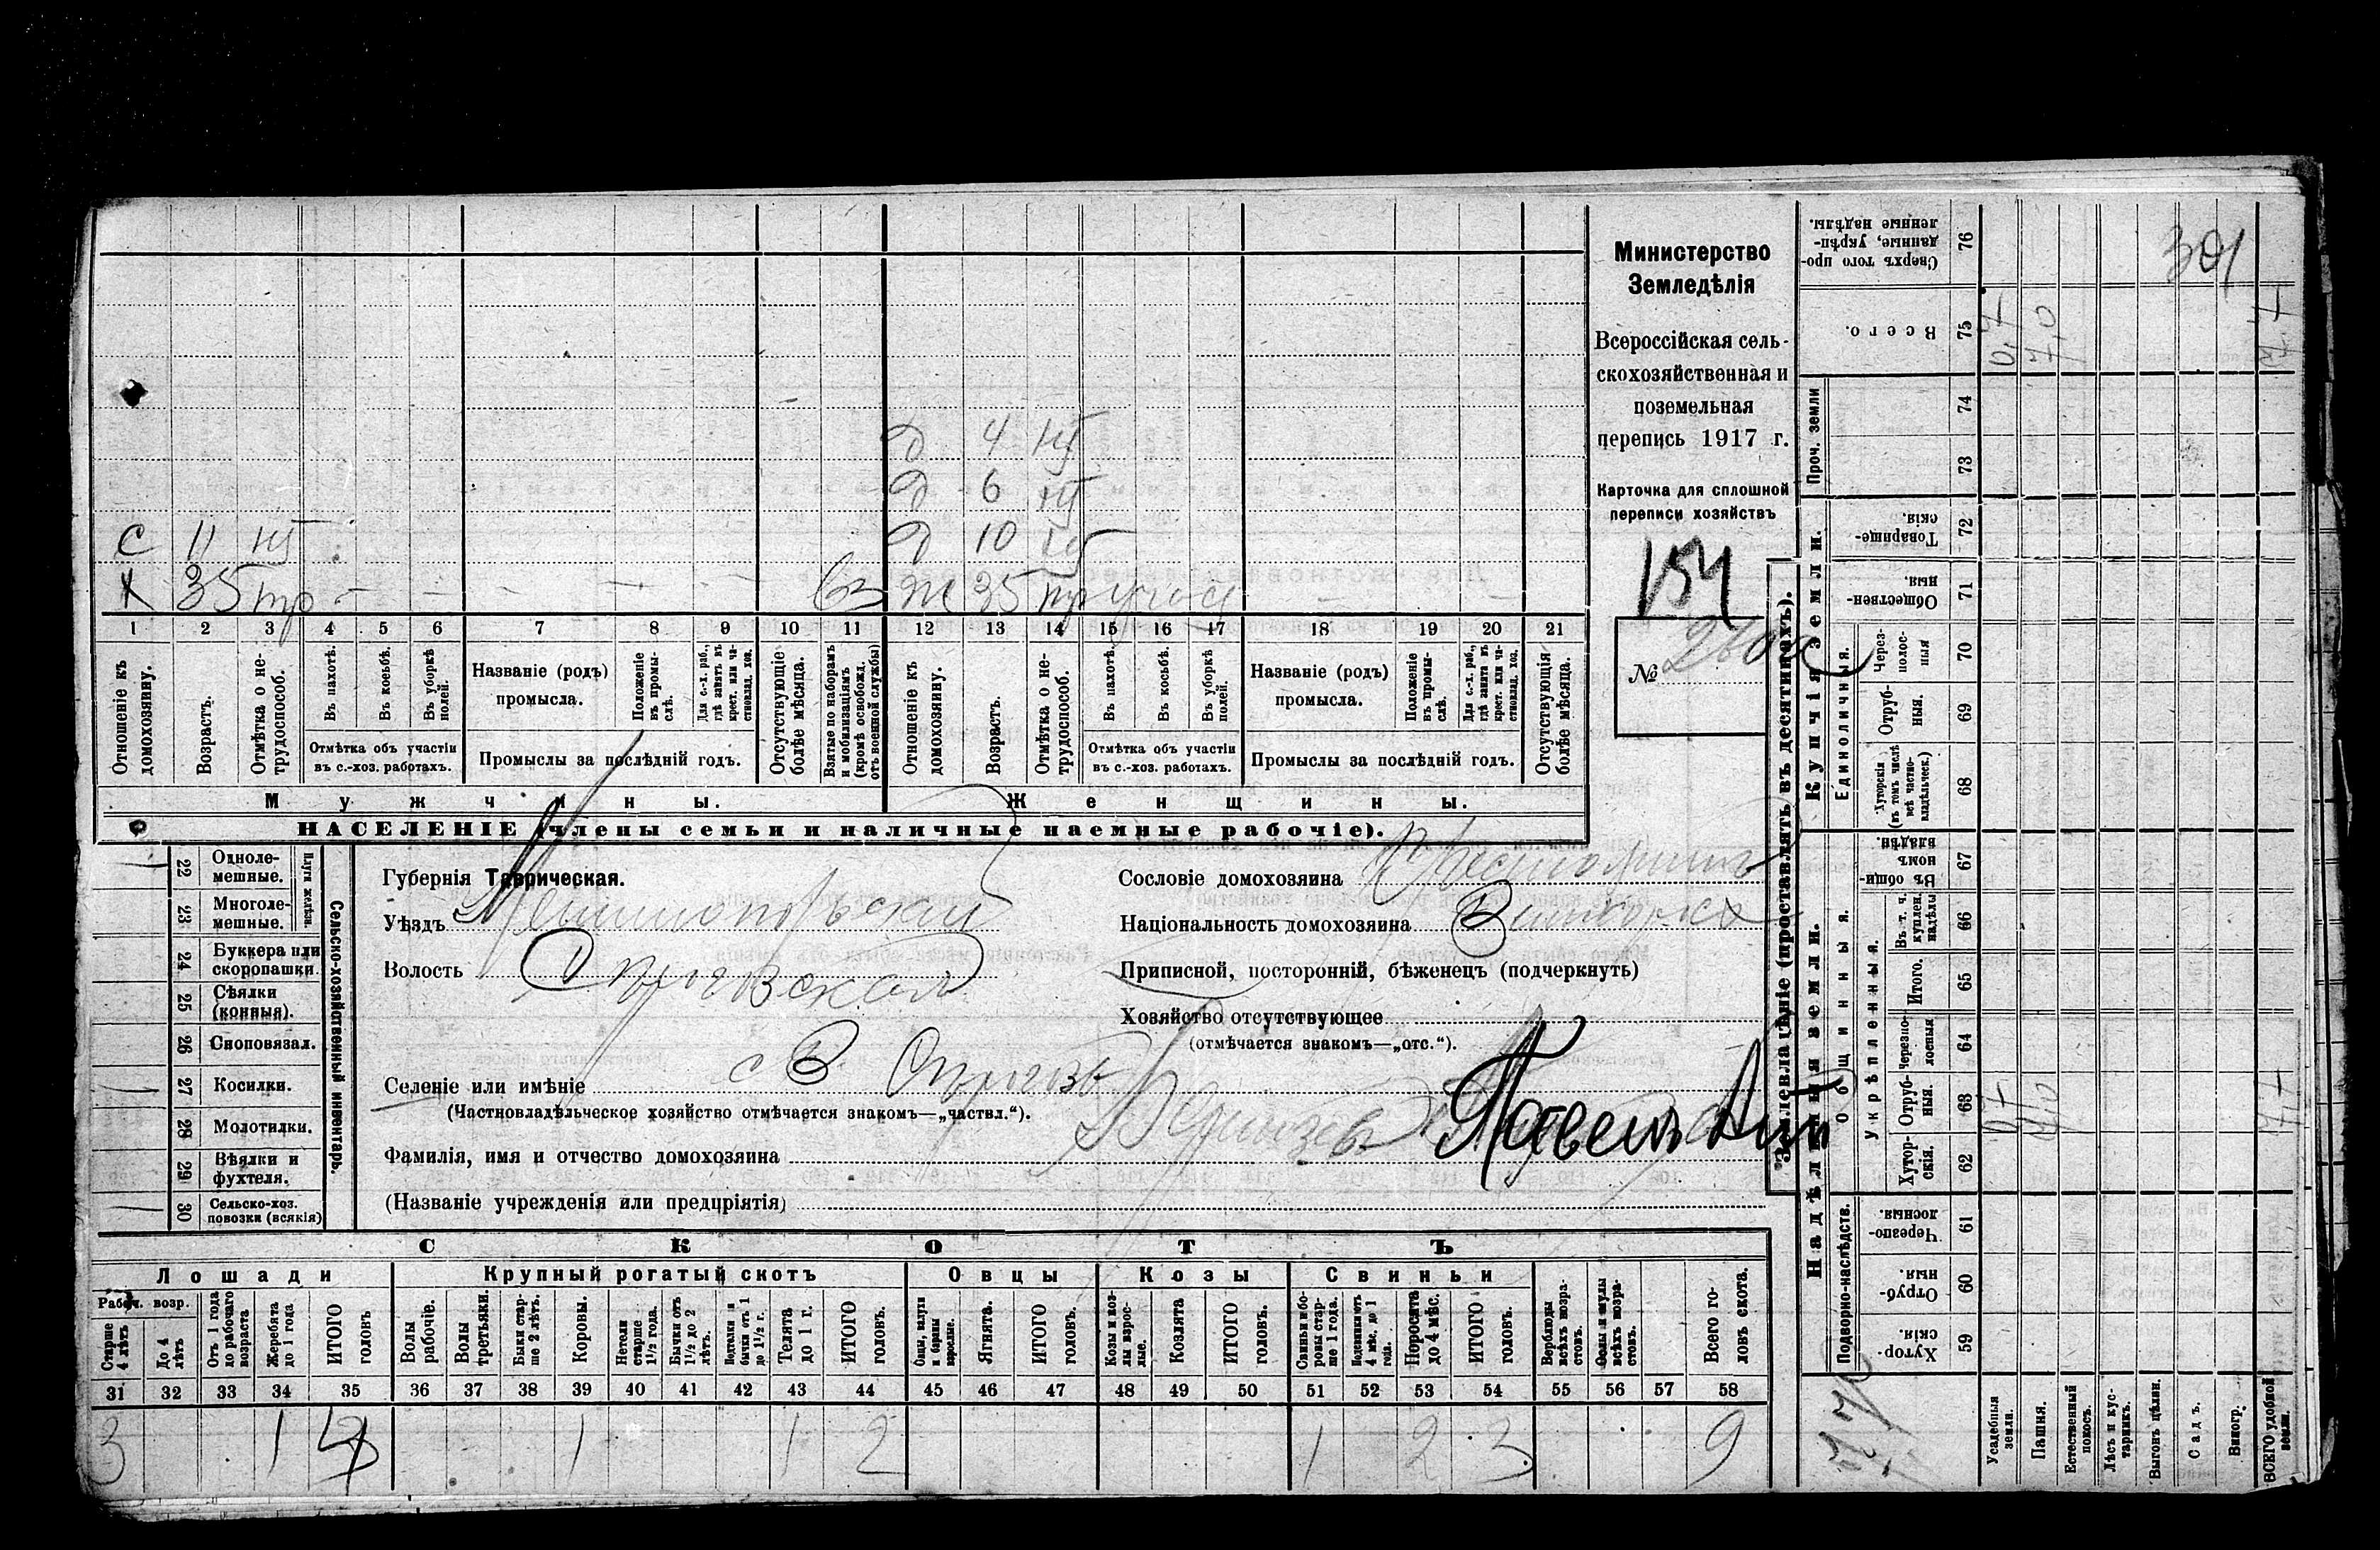 Министерство
Земледѣлія
Всероссійская сель-
скохозяйственная и
поземельная
перепись 1917 г.
Карточка для сплошной
переписи хозяйствъ
154
№
301
д 4 нт
д 6 нт
с 11 нт д 10 нт
х 35 тр - - - - - - вз ж 35 тр - -
1 2 3 4 5 6 7 8 9 10 11 12 13 14 15 16 17 18 19 20 21
Отношеніе къ домохозяину.
Возрастъ.
Отмѣтка о не-трудоспособ.
Въ пахотѣ.
Въ косьбѣ.
Въ уборкѣ полей.
Отмѣтка объ участіи
въ с.-хоз. работахъ.
Названіе (родъ)
промысла.
Положеніе въ промы-слѣ.
Для с.-х. раб., гдѣ занятъ въ крест. или ча-стновлад. хоз.
Промыслы за послѣдній годъ.
Отсутствующіе болѣе мѣсяца.
Взятые по наборамъ и мобилизаціямъ (кромѣ освобожд. отъ военной службы)
Отношеніе къ домохозяину.
Возрастъ.
Отмѣтка о не-трудоспособ.
Въ пахотѣ.
Въ косьбѣ.
Въ уборкѣ полей.
Отмѣтка объ участіи
въ с.-хоз. работахъ.
Названіе (родъ)
промысла.
Положеніе въ промы-слѣ.
Для с.-х. раб., гдѣ занята въ крест. или ча-стновлад. хоз.
Промыслы за послѣдній годъ.
Отсутствующія болѣе мѣсяца.
Мужчины.
Женщины.
НАСЕЛЕНІЕ (члены семьи и наличные наемные рабочіе).
22 Одноле-мешные.
23 Многоле-мешные.
Плуги желѣзн.
24 Буккера или скоропашки.
25 Сѣялки (конныя).
26 Сноповязал.
27 Косилки.
28 Молотилки.
29 Вѣялки и фухтеля.
30 Сельско-хоз. повозки (всякія)
Сельско-хозяйственный инвентарь.
Губернія Таврическая.
Уѣздъ Мелитопольскій
Волость
Селеніе или имѣніе с В
(Частновладѣльческое хозяйство отмѣчается знакомъ—„частвл.“).
Фамилія, имя и отчество домохозяина Павелъ
(Названіе учрежденія или предпріятія)
Сословіе домохозяина
Національность домохозяина
Приписной, посторонній, бѣженецъ (подчеркнуть)
Хозяйство отсутствующее
(отмѣчается знакомъ—„отс.“).
СКОТЪ
Лошади
Рабоч. возр.
Старше 4 лѣтъ
До 4 лѣтъ
Отъ 1 года до рабочаго возраста
Жеребята до 1 года
ИТОГО головъ
Крупный рогатый скотъ
Волы рабочіе.
Волы третьяки.
Быки стар-ше 2 лѣтъ.
Коровы.
Нетели старше 1½ года.
Бычки отъ 1½ до 2 лѣтъ.
Подтелки и бычки отъ 1 до 1½ г.
Телята до 1 г.
ИТОГО головъ.
Овцы
Овцы, валухи и бараны взрослые.
Ягнята.
ИТОГО головъ.
Козы
Козы и коз-лы взрос-лые.
Козлята
ИТОГО головъ.
Свиньи
Свиньи и бо-ровы стар-ше 1 года.
Подсвинки отъ 4 мѣс. до 1 года.
Поросята до 4 мѣс.
ИТОГО головъ.
Верблюды всѣхъ возра-стовъ.
Ослы и мулы всѣхъ возра-стовъ.
Всего го-ловъ скота.
31 32 33 34 35 36 37 38 39 40 41 42 43 44 45 46 47 48 49 50 51 52 53 54 55 56 57 58
3 1 4 1 1 2 1 2 3 9
Землевладѣніе (проставлять въ десятинахъ).
Надѣльныя земли.
Купчія земли.
Подворно-наслѣдств.
Хутор-скія 59
Отруб-ныя 60
Черезпо-лосныя. 61
Общинныя.
Укрѣпленныя.
Хутор-скія. 62
Отруб-ныя. 63
Черезпо-лосныя 64
Итого. 65
Въ т. ч. куплен. надѣлы 66
Въ общин-номъ владѣн. 67
Единоличныя.
Хуторскія (въ томъ числѣ всѣ частно-владѣльческ.) 68
Отруб-ныя. 69
Через-полос-ныя 70
Обществен-ныя. 71
Товарище-скія. 72
Проч. земли
73
74
Всего. 75
Сверхъ того про-данные, укрѣп-ленные надѣлы. 76
Усадебныя земли.
Пашня.
Естественный покосъ.
Лѣсъ и кус-тарникъ.
Выгонъ цѣлин.
Садъ.
Виногр.
ВСЕГО удобной земли.
0,7 7,0 7,7
0,7 7,0 7,7